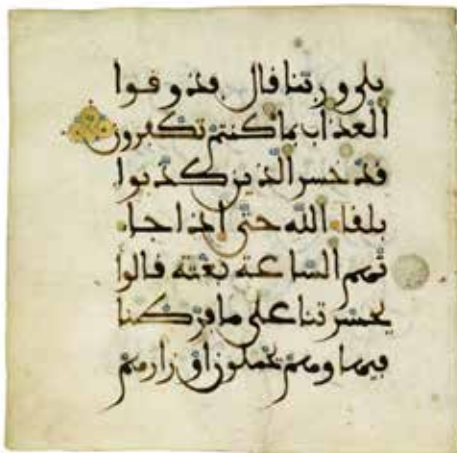 بلى وربنا قال فذوقوا
العذاب بما كنتم تكفرون
قد خسر الذين كذبوا
بلقاء الله حتى إذا جا
تهم الساعة بغتة قالوا
يحسرتنا على ما فرطنا
فيها وهم يحملون أوزارهم